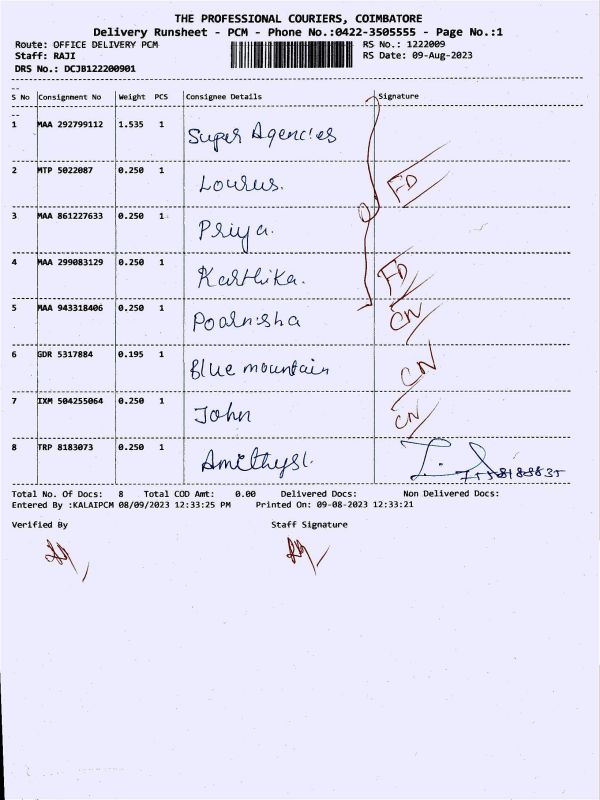 THE PROFESSIONAL COURIERS, COIMBATORE
Delivery Runsheet - PCM - Phone No.:0422-3505555 - Page No.:1
Route: OFFICE DELIVERY PCM RS No.: 1222009
Staff: RAJI RS Date: 09-Aug-2023
DRS No.: DCJB122200901
S No Consignment No Weight PCS Consignee Details Signature
1 MAA 292799112 1.535 1 Super Agencies
2 MTP 5022087 0.250 1 Lourus. FD
3 MAA 861227633 0.250 1 Priya.
4 MAA 299083129 0.250 1 Karthika. FD
5 MAA 943318406 0.250 1 Poornisha CN
6 GDR 5317884 0.195 1 Blue mountain CN
7 IXM 504255064 0.250 1 John CN
8 TRP 8183073 0.250 1 Amethyst.
Total No. Of Docs: 8 Total COD Amt: 0.00 Delivered Docs: Non Delivered Docs:
Entered By :KALAIPCM 08/09/2023 12:33:25 PM Printed On: 09-08-2023 12:33:21
Verified By Staff Signature